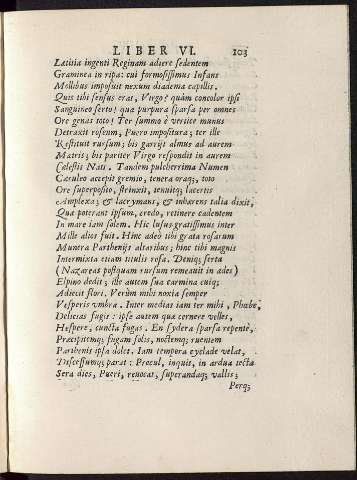 LIBER VI. 103
Latitia ingenti Reginam adiere sedentem
Graminea in ripa: cui formosissimus Infans
Mollibus imposuit nexum diadema capillis.
Quis tibi sensus erat, Virgo! quàm concolor ipsi
Sanguineo serto! qua purpura sparsa per omnes
Ore genas toto! Ter summo è vertice munus
Detraxit roseum, Puero impositura; ter ille
Restituit rursum; bis garrijt almus ad aurem
Matris; bis pariter Virgo respondit in aurem
Cælestis Nati. Tandem pulcherrima Numen
Cæruleo accepit gremio, tenera oraq; toto
Ore superposito, strinxit, tenuitq; lacertis
Amplexa; & lacrymans, & inhærens talia dixit,
Qua poterant ipsum, credo, retinere cadentem
In mare iam solem. Hic lusus gratissimus inter
Mille alios fuit. Hinc adeò tibi grata rosarum
Munera Parthenijs altaribus; hinc tibi magnis
Intermixta etiam titulis rosa. Deniq; serta
(Nazareas postquam rursum remeauit in ades)
Elpino dedit; ille autem sua carmina cuiq;
Adiecit flori. Verùm mihi noxia semper
Vesperis vmbra. Inter medias iam ter mihi, Phœbe,
Delicias fugis: ipse autem quæ cernere velles,
Hespere, cuncta fugas. En sydera sparsa repentè,
Præcipitemq; fugam solis, noctemq; ruentem
Parthenis ipsa dolet. Iam tempora cyclade velat,
Discessumq; parat: Procul, inquit, in ardua tecta
Sera dies, Pueri, reuocat, superandaq; vallis;
Perq;